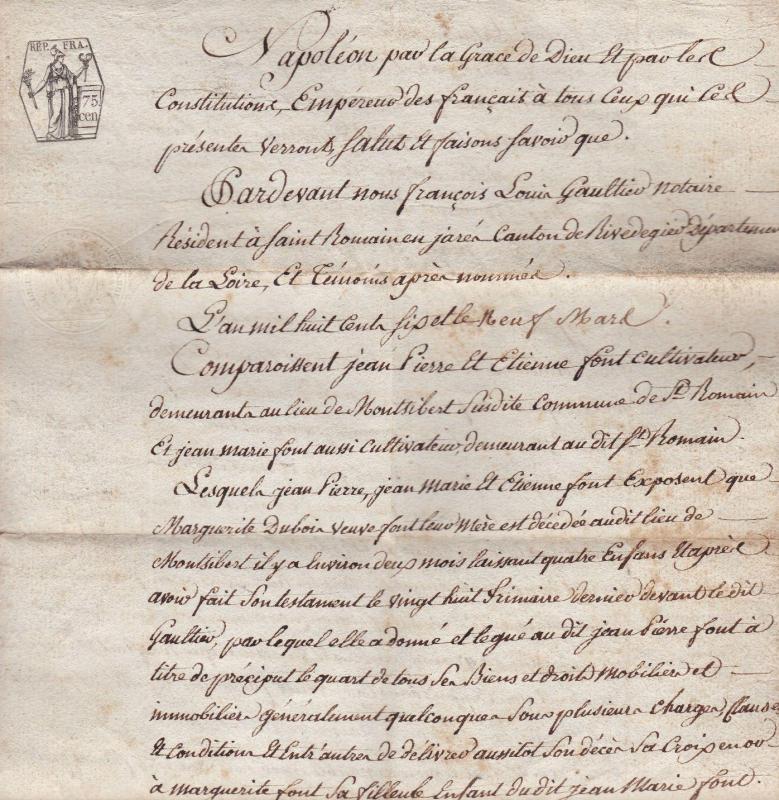 RÉP. FRA.
75
cen
Napoléon par la Grace de Dieu Et par les
Constitutions, Empéreur des français à tous Ceux qui Ces
présentes verront, Salut Et faisons savoir que.
Pardevant nous françois Louis Gaultier notaire
Résident à Saint Romain en jarés Canton de Rivedegier Département
de la Loire, Et Témoins après nommés.
L'an mil huit Cent six et le Neuf Mars.
Comparoissent jean Pierre Et Etienne font cultivateurs,
demeurants au lieu de Montsibert susdite Commune de St. Romain
Et jean marie font aussi cultivateur, demeurant au dit St. Romain.
Lesquels jean Pierre, jean Marie et Etienne font Exposent que
Marguerite Dubois veuve font leur Mère est décédée audit lieu de
Montsibert il y a Environ deux mois laissant quatre Enfans Et après
avoir fait son testament le vingt huit frimaire dernier devant le dit
Gaultier, par lequel elle a donné et legué au dit jean Pierre font à
titre de préciput le quart de tous ses Biens et droits mobiliers et
immobiliers généralement quelconques sous plusieurs charges, clauses
Et Conditions Et Entr'autres de délivrer aussitot son décès sa Croix en or
à marguerite font sa filleule Enfant du dit jean Marie font.